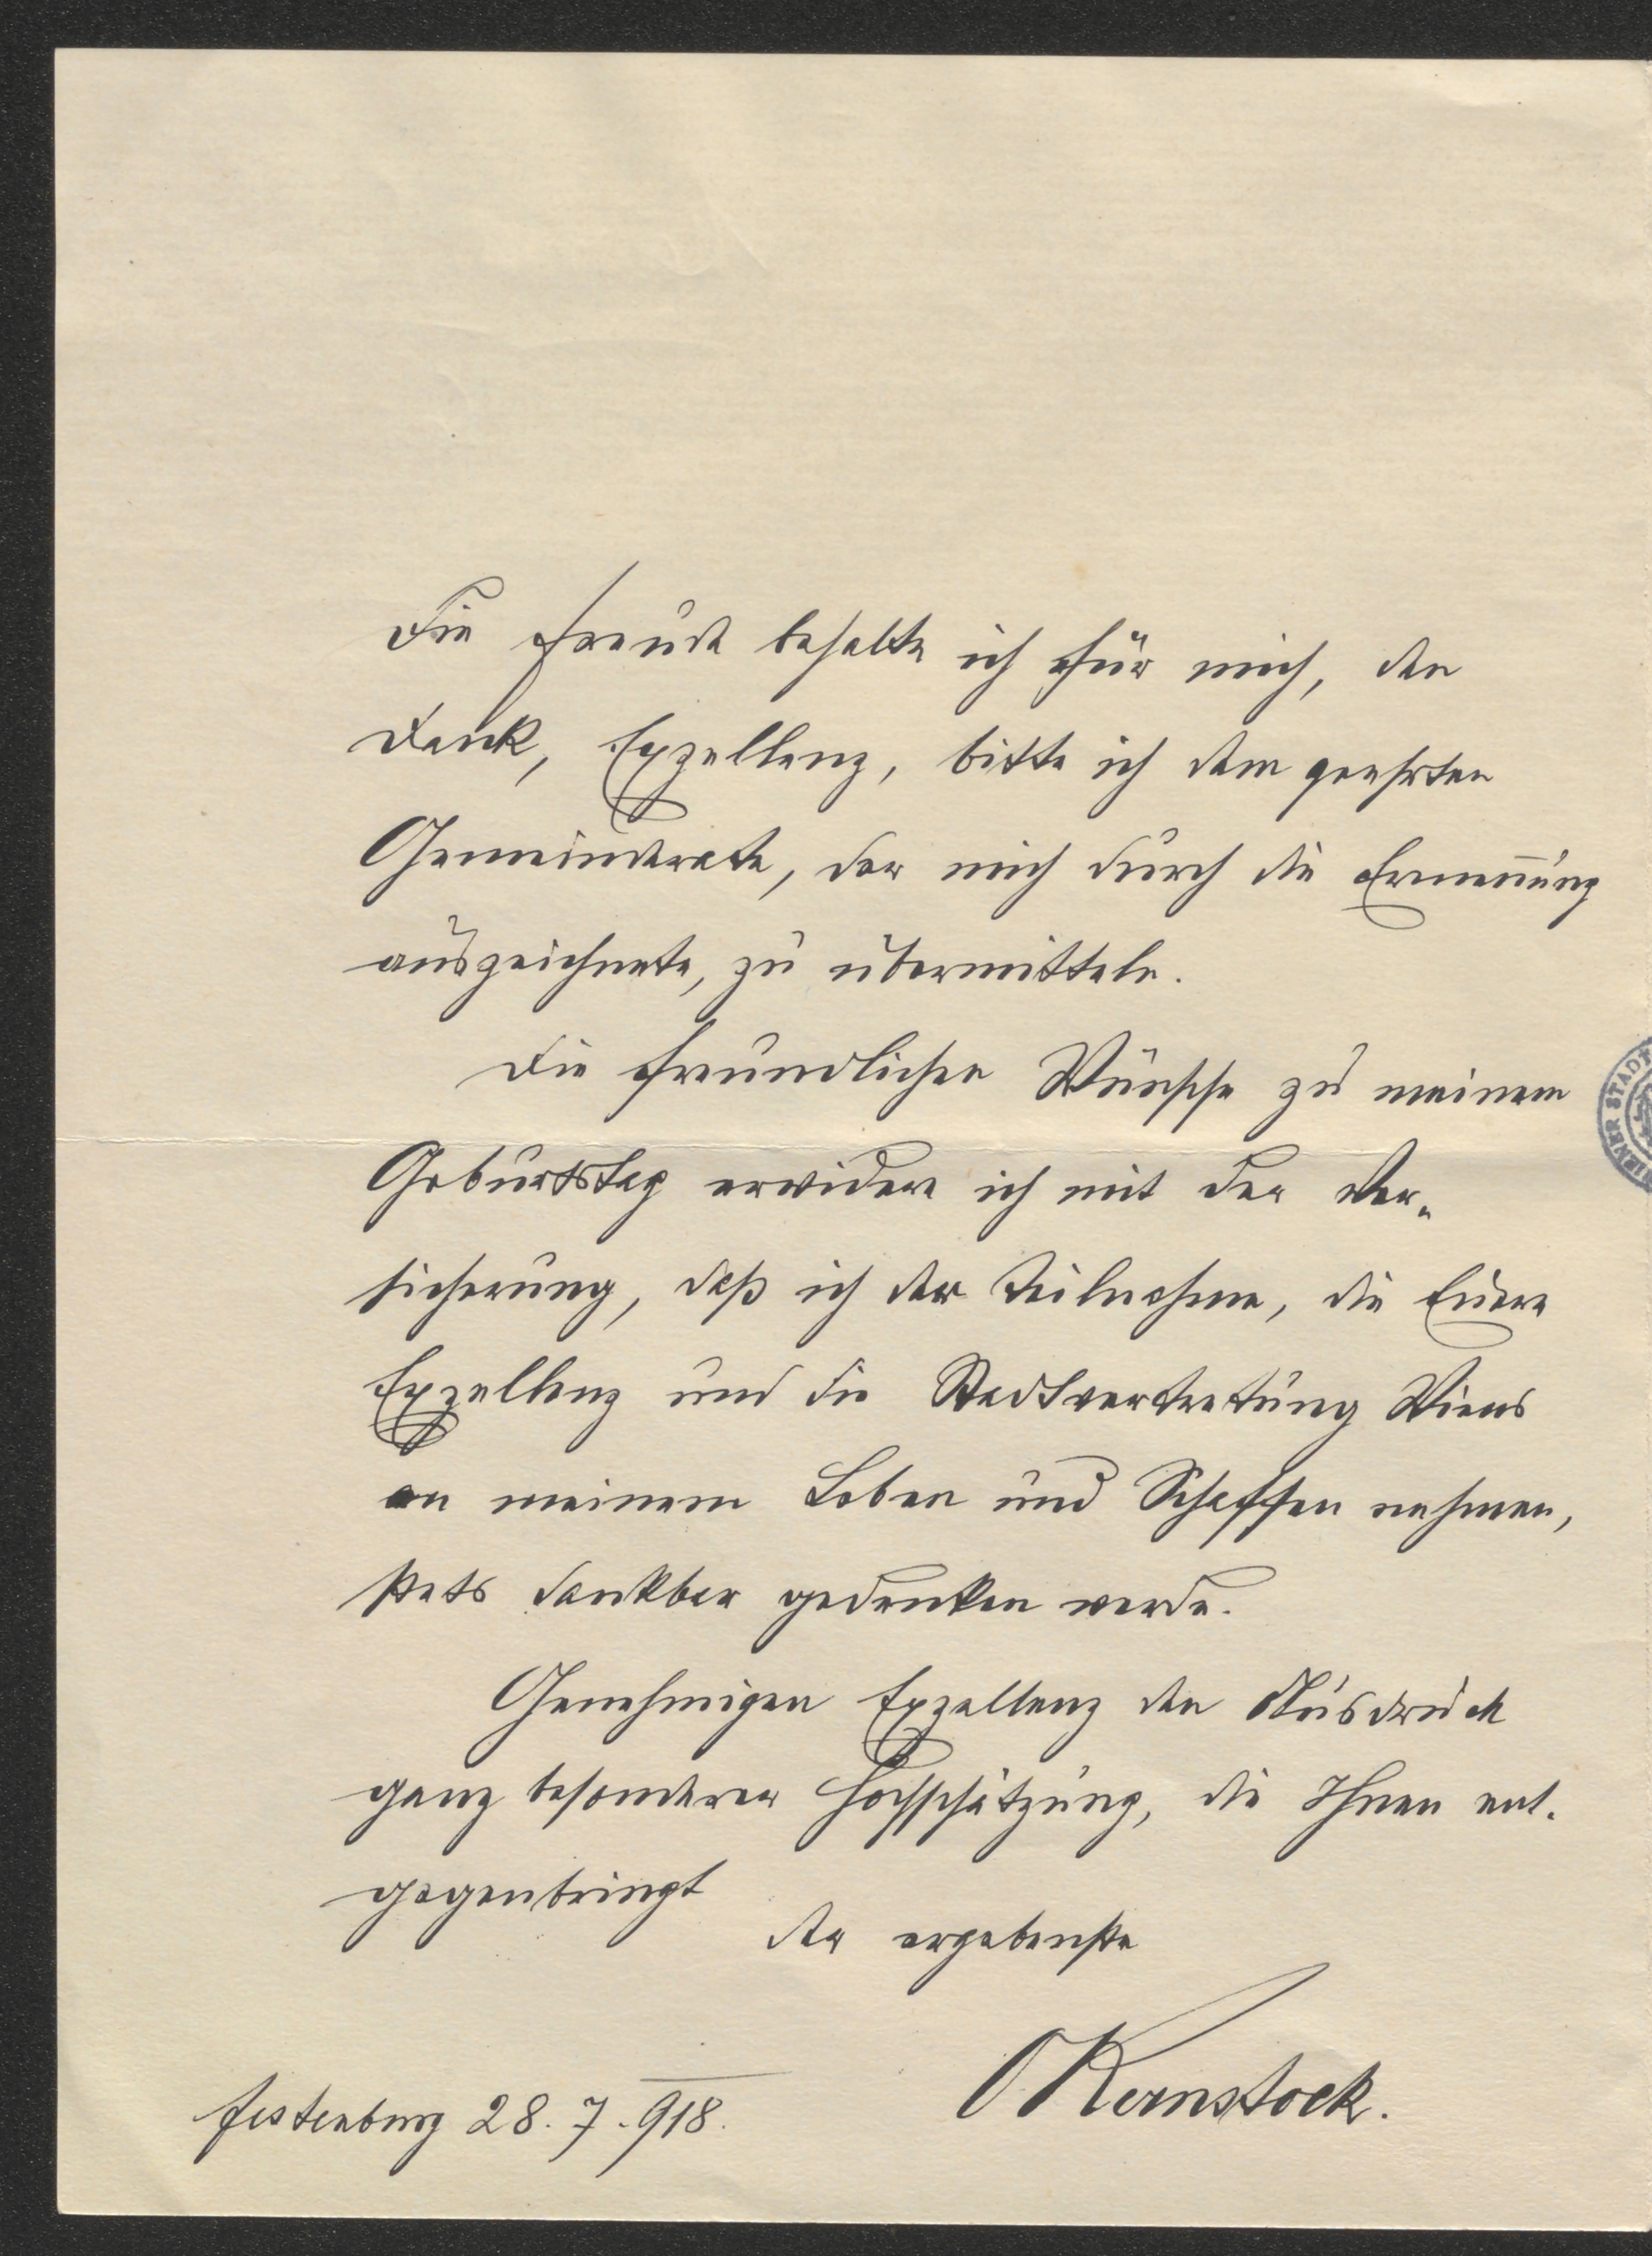 Die Freude behalte ich für mich, den
Dank, Exzellenz, bitte ich dem geehrten
Gemeinderate, der mich durch die Ernennung
auszeichnete, zu übermitteln.
Die freundlichen Wünsche zu meinem
Geburtstag erwidere ich mit der Ver-
sicherung, daß ich der Teilnahme, die Euere
Exzellenz und die Stadtvertretung Wiens
an meinem Leben und Schaffen nehmen,
stets dankbar gedenken werde.
Genehmigen Exzellenz den Ausdruck
ganz besonderer Hochschätzung, die Ihnen ent-
gegenbringt
der ergebenste
OKernstock.
Festenburg 28. 7. 918.
WIENER STADT